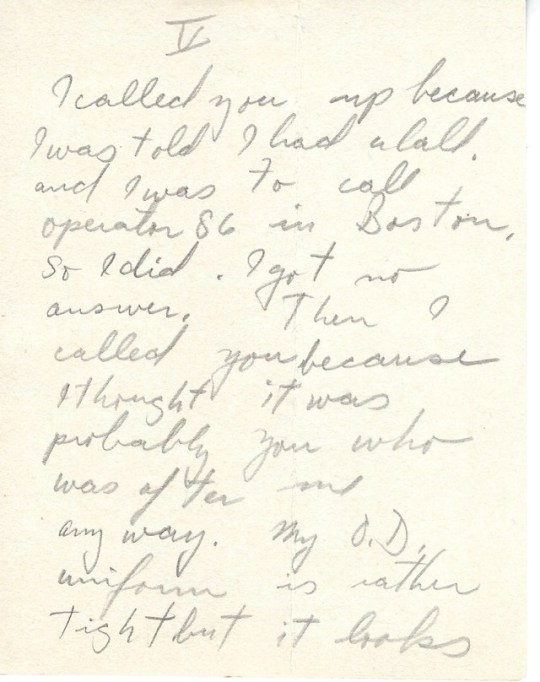 V
I called you up because
I was told I had a call.
and I was to call
operator 86 in Boston,
So I did. I got no
answer. Then I
called you because
I thought it was
probably you who
was after me
any way. My O.D.
uniform is rather
tight but it looks